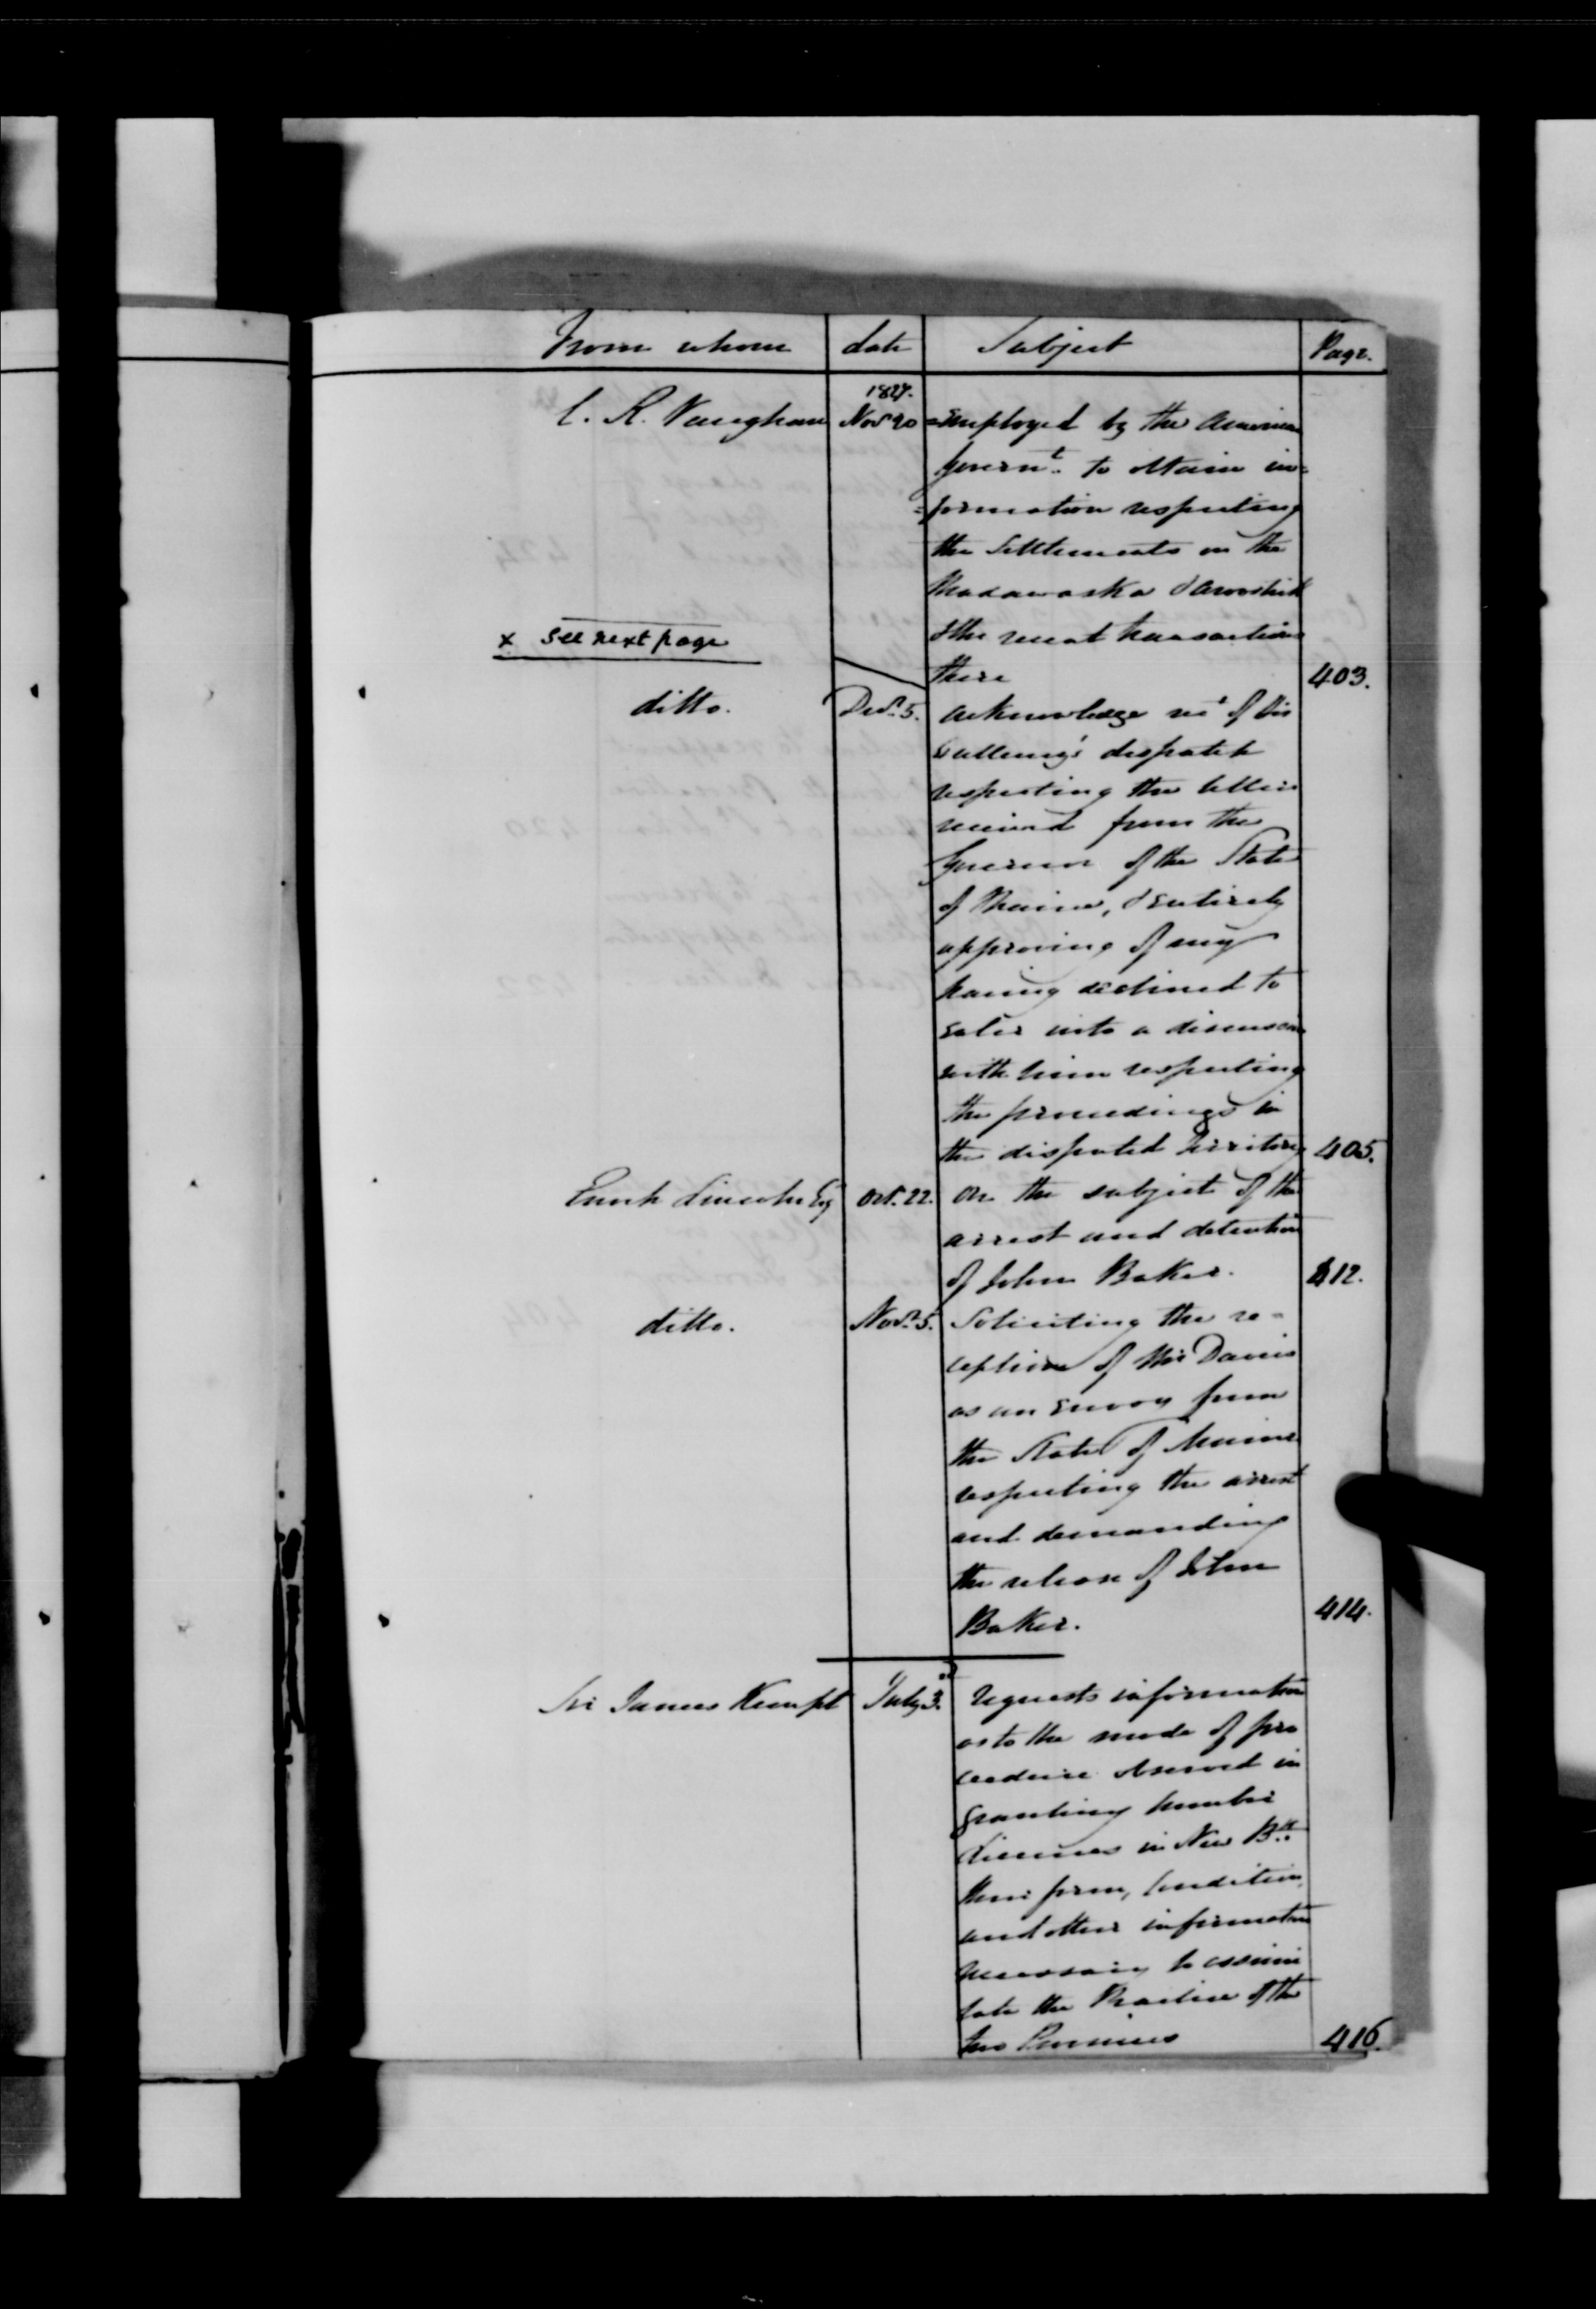 From whom date Subject Page.
1827.
C. R. Vaughan Novr 20 =employed by the American
Governt. to obtain in=
=formation respecting
the Settlements on the
Madawaska & Aroostick
x see next page & the recent transactions
there 403.
ditto. Decr. 5. acknowledge rect of His
Excellency's dispatch
respecting the letter
received from the
Governor of the State
of Maine, & Entirely
approving of my
having declined to
enter into a discussion
with him respecting
the proceedings in
the disputed territory 405.
Enoch Lincoln Esq Oct. 22. On the subject of the
arrest and detention
of John Baker. 412.
ditto. Novr. 5. Soliciting the re-
ception of Mr Davis
as an Envoy from
the State of Maine
respecting the arrest
and demanding
the release of John
Baker. 414.
Sir James Kempt July 3. requests information
as to the mode of pro
cedure observed in
granting timber
licenses in New Bk.
their form, Condition,
and other information
necessary to assimi
late the Practice of the
two Provinces 416.